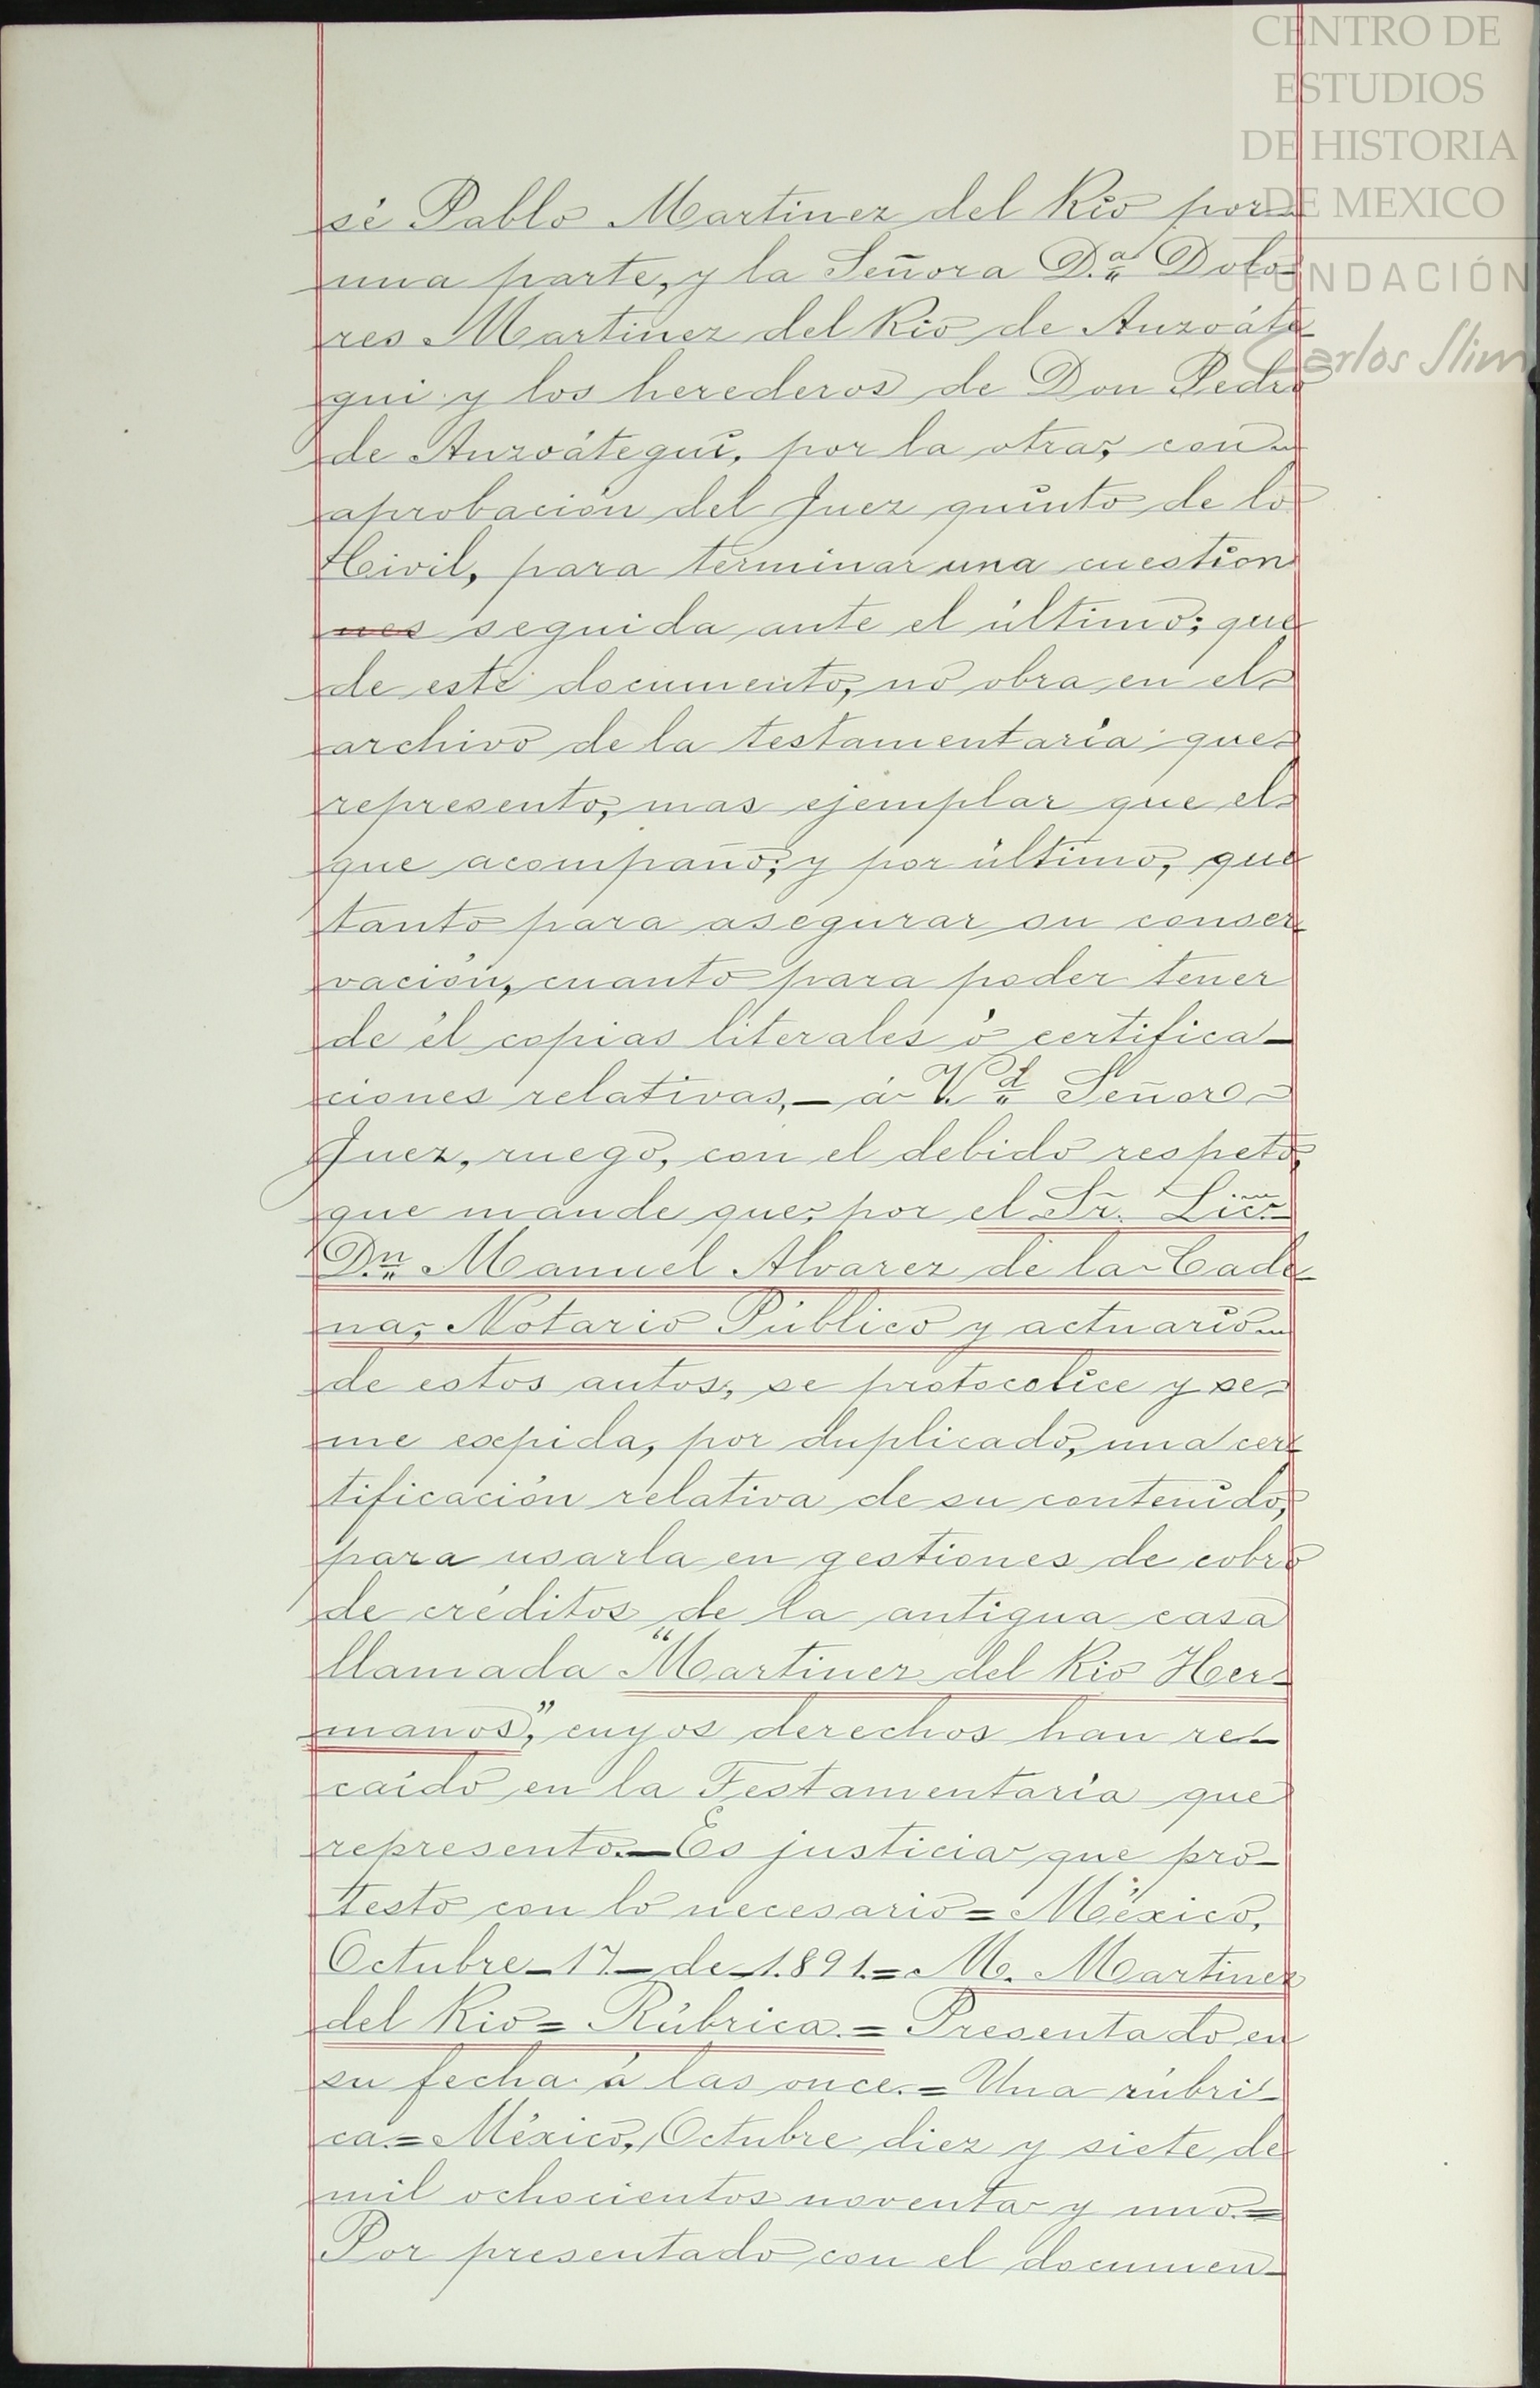 CENTRO DE
ESTUDIOS
DE HISTORIA
DE MEXICO
FUNDACIÓN
Carlos Slim
sé Pablo Martinez del Rio por
una parte, y la Señora D.ª Dolo-
res Martinez del Rio de Anzoáte
gui y los herederos de Don Pedro
de Anzoátegui, por la otra, con
aprobación del Juez quinto de lo
Civil, para terminar una cuestion
nes seguida ante el último; que
de este documento, no obra en el
archivo de la testamentaría que
represento, mas ejemplar que el
que acompaño; y por último, que
tanto para asegurar su conser
vación, cuanto para poder tener
de él copias literales ó certifica-
ciones relativas, - á V.d Señor
Juez, ruego, con el debido respeto,
que mande que, por el Sr. Lic.
D.n Manuel Alvarez de la Cade
na, Notario Público y actuario
de estos autos, se protocolice y se
me expida, por duplicado, una cer
tificación relativa de su contenido,
para usarla en gestiones de cobro
de créditos de la antigua casa
llamada "Martinez del Rio Her-
manos", cuyos derechos han re-
caído en la Testamentaría que
represento.-Es justicia que pro-
testo con lo necesario=México,
Octubre-17-de-1.891.=M. Martinez
del Rio=Rúbrica.=Presentado en
su fecha á las once.=Una rúbri-
ca.=México, Octubre diez y siete de
mil ochocientos noventa y uno.=
Por presentado con el documen-